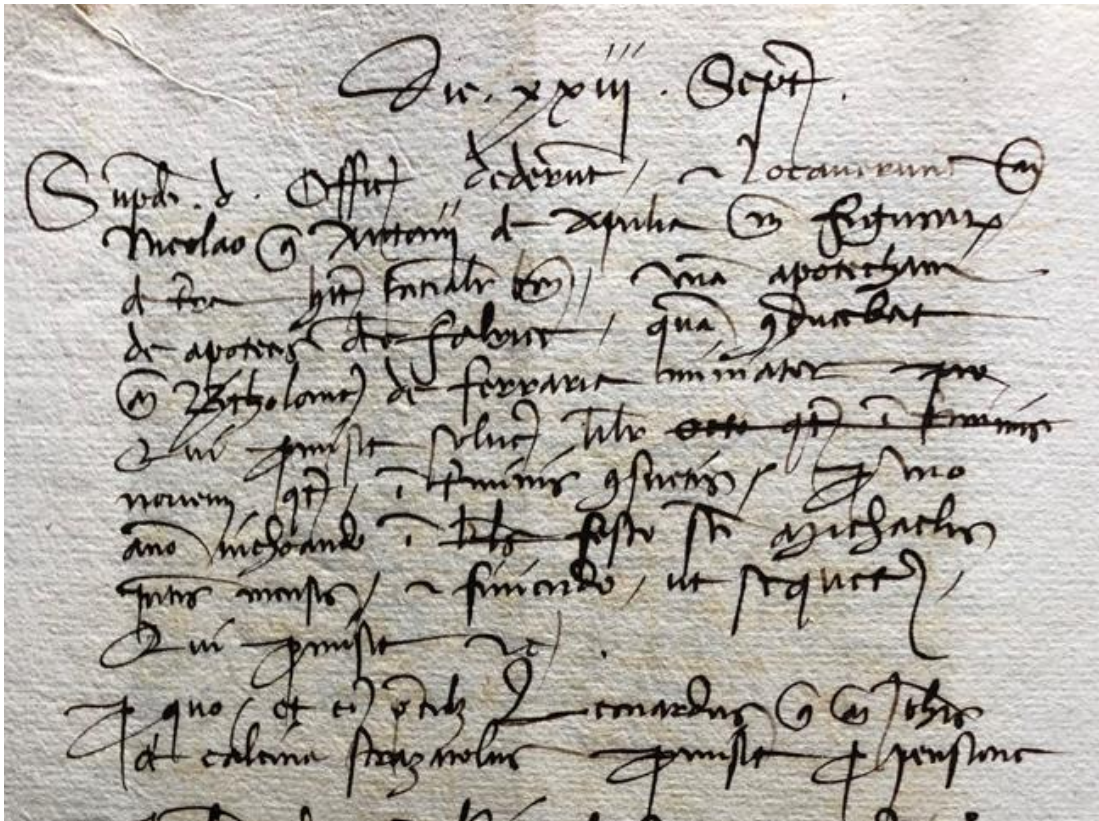 Die . xxiii . Sept
Supdi . d . Offit dederunt / locaverunt m
Nicolao q Antonii de Apulia m figurar
de tra una apothecam
de apotecis de fabrice / quam 9ducebat
m Bartholome de ferraria miniator pro
Qui pmisit solve libr octo qt i terminis
novem qt / i terminis 9suetis / p uno
anno inchoando i kls festo sti Michaelis
pntis mensis / finiendo / ut sequet /
Qui pmisit etc .
p quo / et ei pcib Leonardus q m Johis
de calcina strazarolus pmisit p pensione